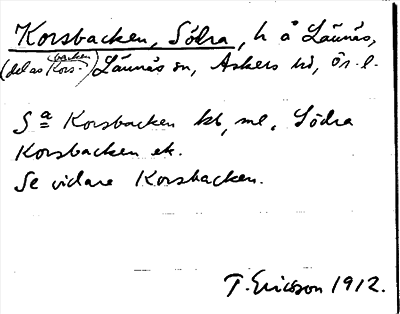 Korsbacken, Södra, h å Lännäs,
(del as Kors-backen) Lännäs sn, Askers hd, Ör. l.
Sa Korsbacken kb, ml, Södra
Korsbacken ek.
Se vidare Korsbacken.
T. Ericsson 1912.